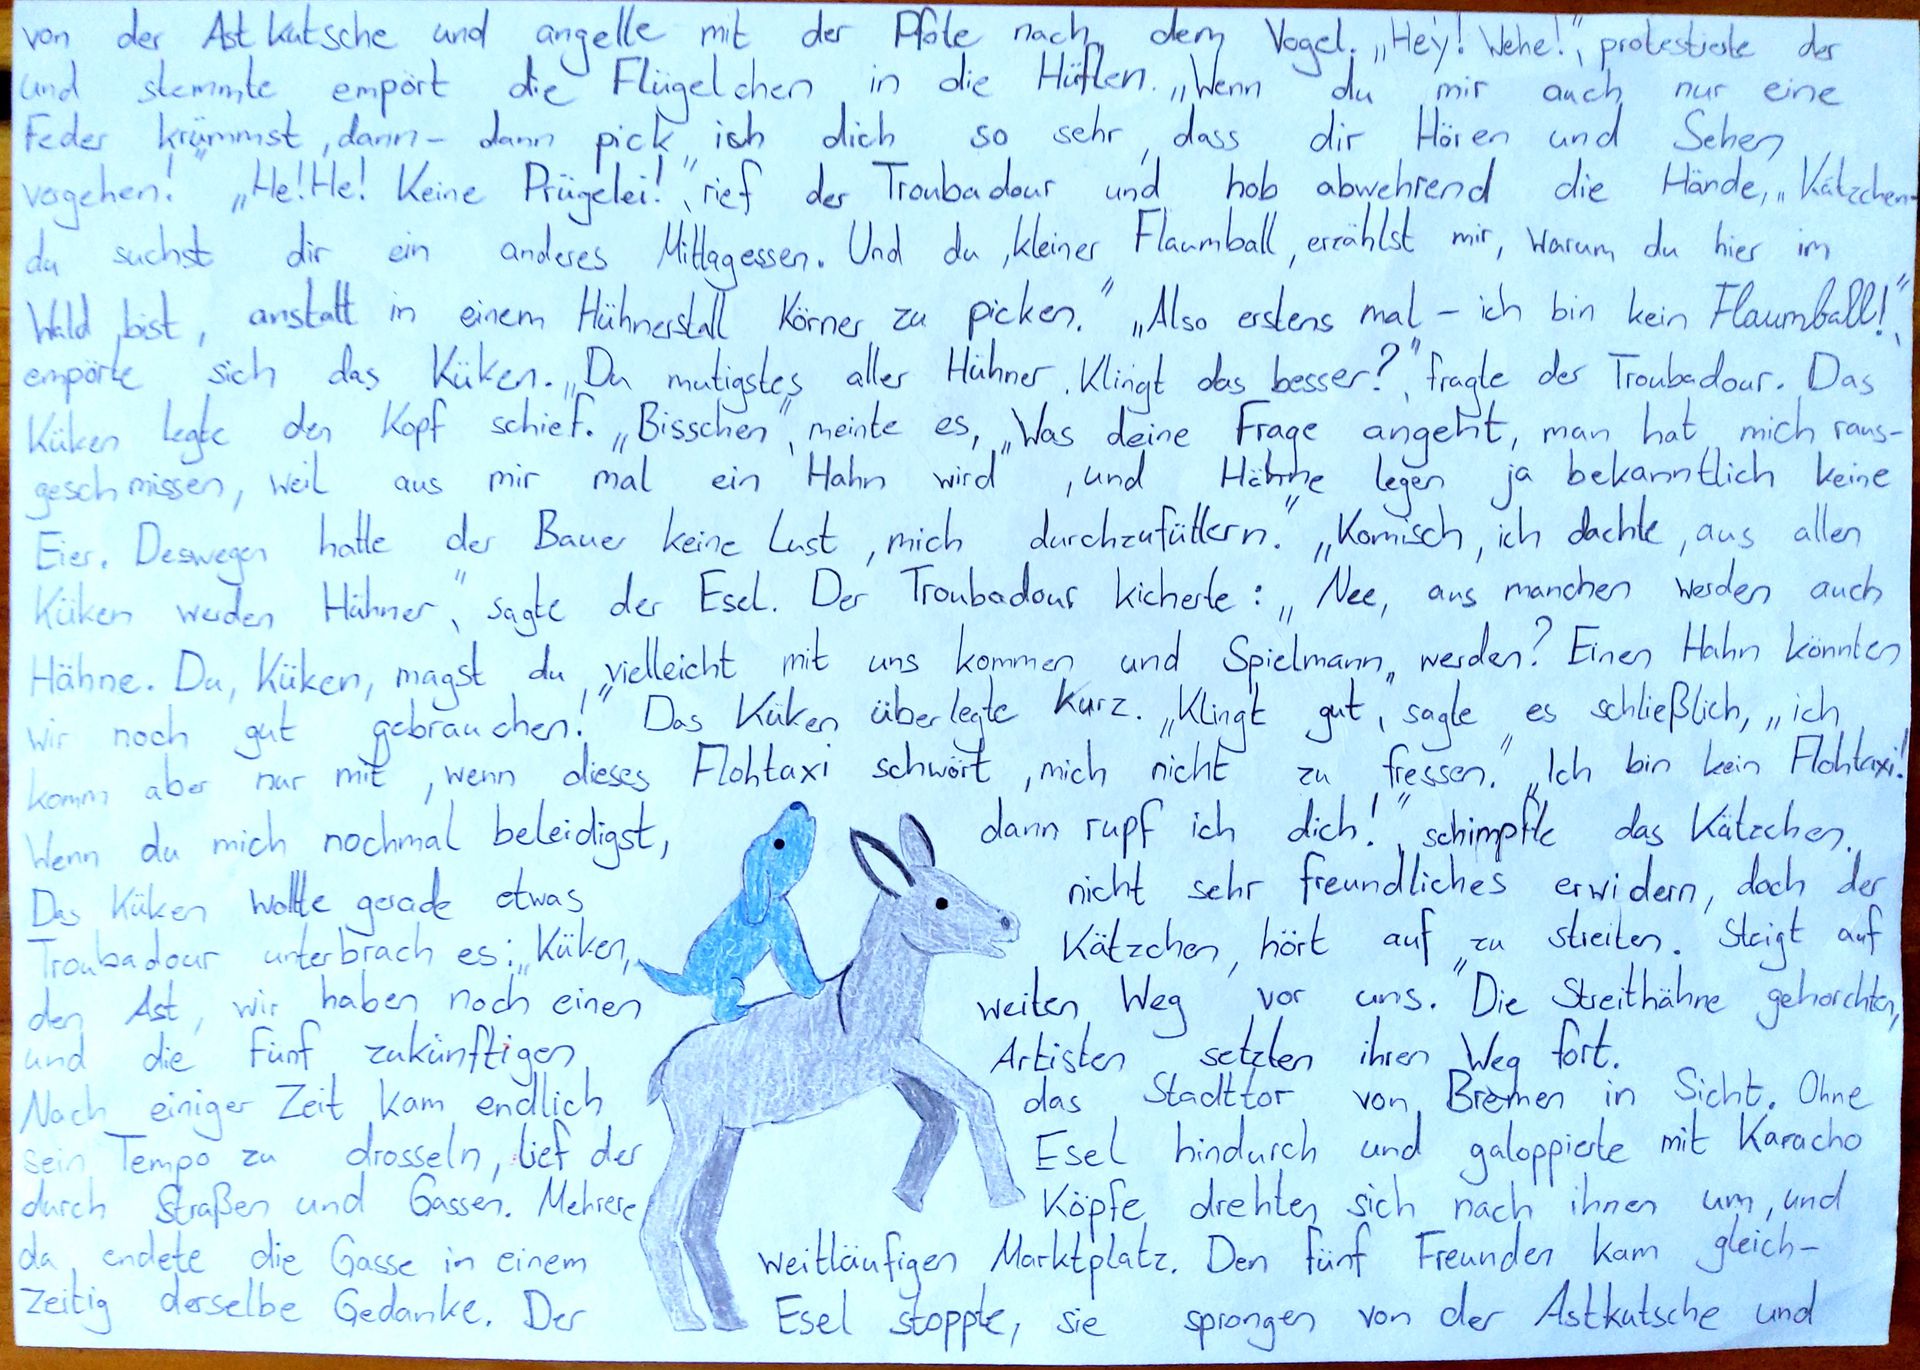 von der Astkutsche und angelte mit der Pfote nach dem Vogel. „Hey! Wehe!", protestierte der
und stemmte empört die Flügelchen in die Hüften. „Wenn du mir auch nur eine
Feder krümmst, dann – dann pick ich dich so sehr, dass dir Hören und Sehen
vergehen!" „He! He! Keine Prügelei!", rief der Troubadour und hob abwehrend die Hände, „Kätzchen –
du suchst dir ein anderes Mittagessen. Und du, kleiner Flaumball, erzählst mir, warum du hier im
Wald bist, anstatt in einem Hühnerstall Körner zu picken." „Also erstens mal – ich bin kein Flaumball!",
empörte sich das Küken. „Du mutigstes aller Hühner. Klingt das besser?", fragte der Troubadour. Das
Küken legte den Kopf schief. „Bisschen", meinte es, „Was deine Frage angeht, man hat mich raus-
geschmissen, weil aus mir mal ein Hahn wird, und Hähne legen ja bekanntlich keine
Eier. Deswegen hatte der Bauer keine Lust, mich durchzufüttern." „Komisch, ich dachte, aus allen
Küken werden Hühner", sagte der Esel. Der Troubadour kicherte: „Nee, aus manchen werden auch
Hähne. Du, Küken, magst du vielleicht mit uns kommen und Spielmann werden? Einen Hahn könnten
wir noch gut gebrauchen!" Das Küken überlegte kurz. „Klingt gut", sagte es schließlich, „ich
komm aber nur mit, wenn dieses Flohtaxi schwört, mich nicht zu fressen." „Ich bin kein Flohtaxi!
Wenn du mich nochmal beleidigst, dann rupf ich dich!", schimpfte das Kätzchen.
Das Küken wollte gerade etwas nicht sehr freundliches erwidern, doch der
Troubadour unterbrach es: „Küken, Kätzchen, hört auf zu streiten. Steigt auf
den Ast, wir haben noch einen weiten Weg vor uns." Die Streithähne gehorchten,
und die fünf zukünftigen Artisten setzten ihren Weg fort.
Nach einiger Zeit kam endlich das Stadttor von Bremen in Sicht. Ohne
sein Tempo zu drosseln, lief der Esel hindurch und galoppierte mit Karacho
durch Straßen und Gassen. Mehrere Köpfe drehten sich nach ihnen um, und
da endete die Gasse in einem weitläufigen Marktplatz. Den fünf Freunden kam gleich-
zeitig derselbe Gedanke. Der Esel stoppte, sie sprangen von der Astkutsche und